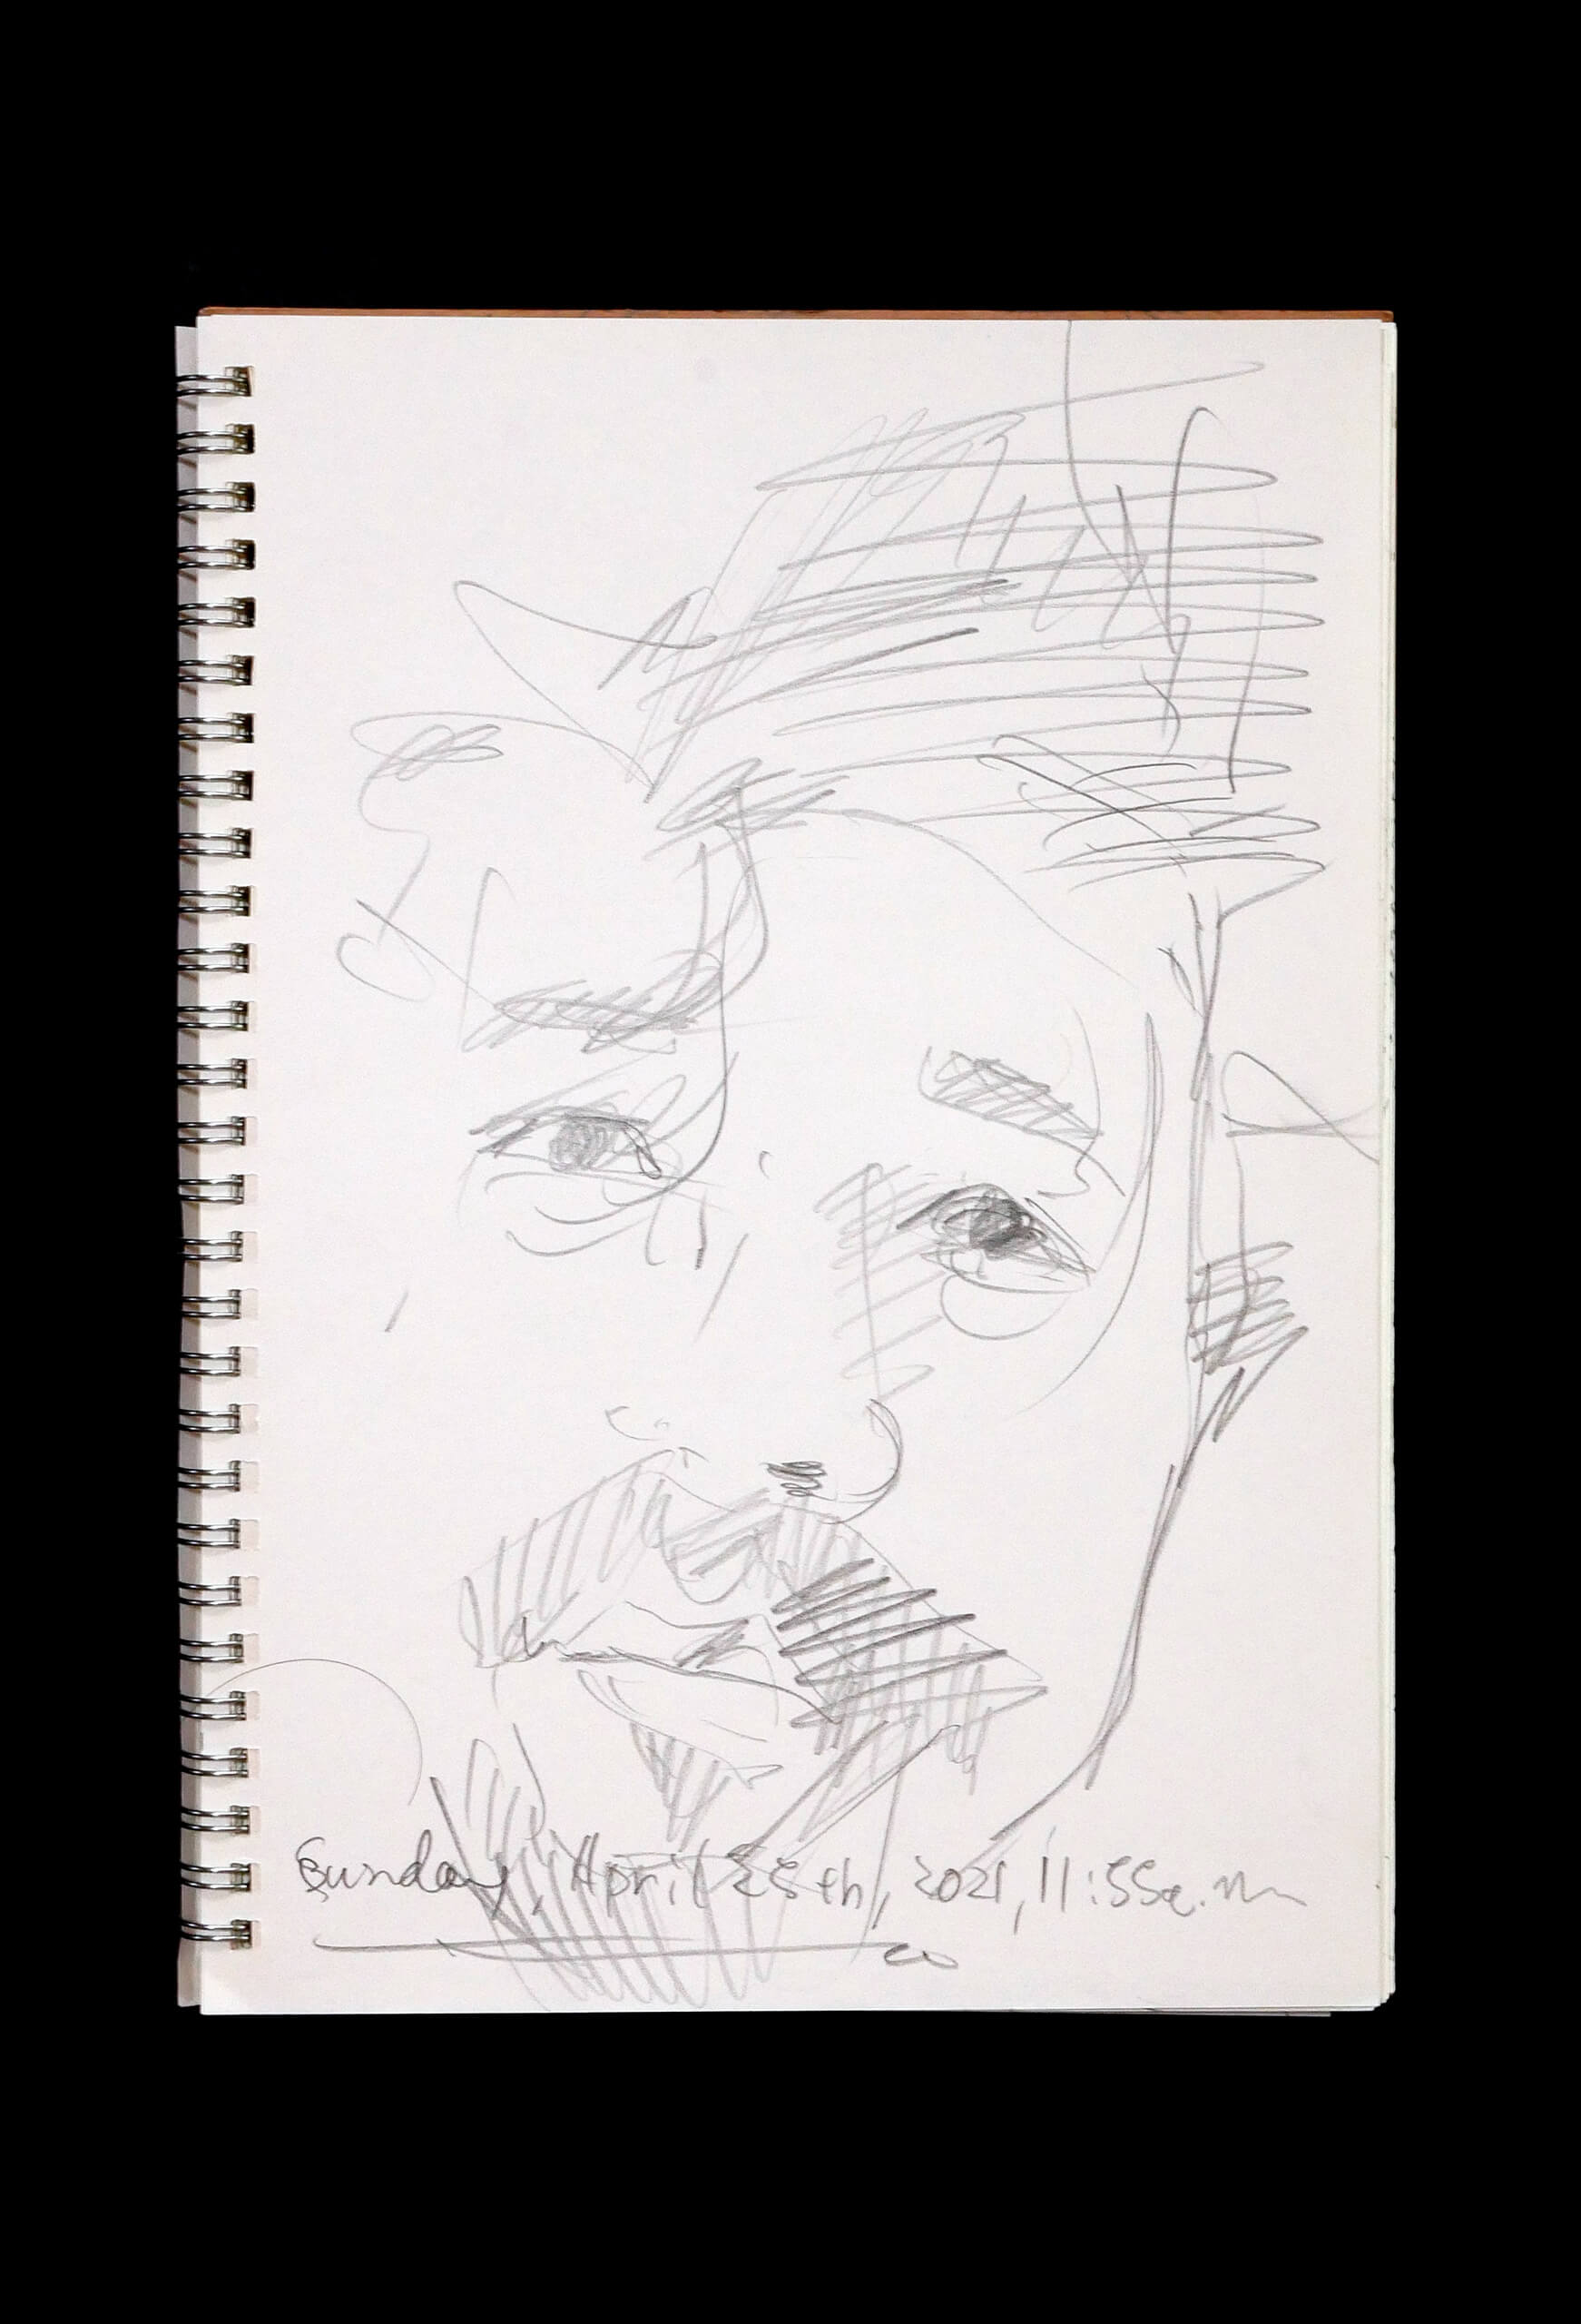 Sunday, April 25th, 2021, 11:55a.m